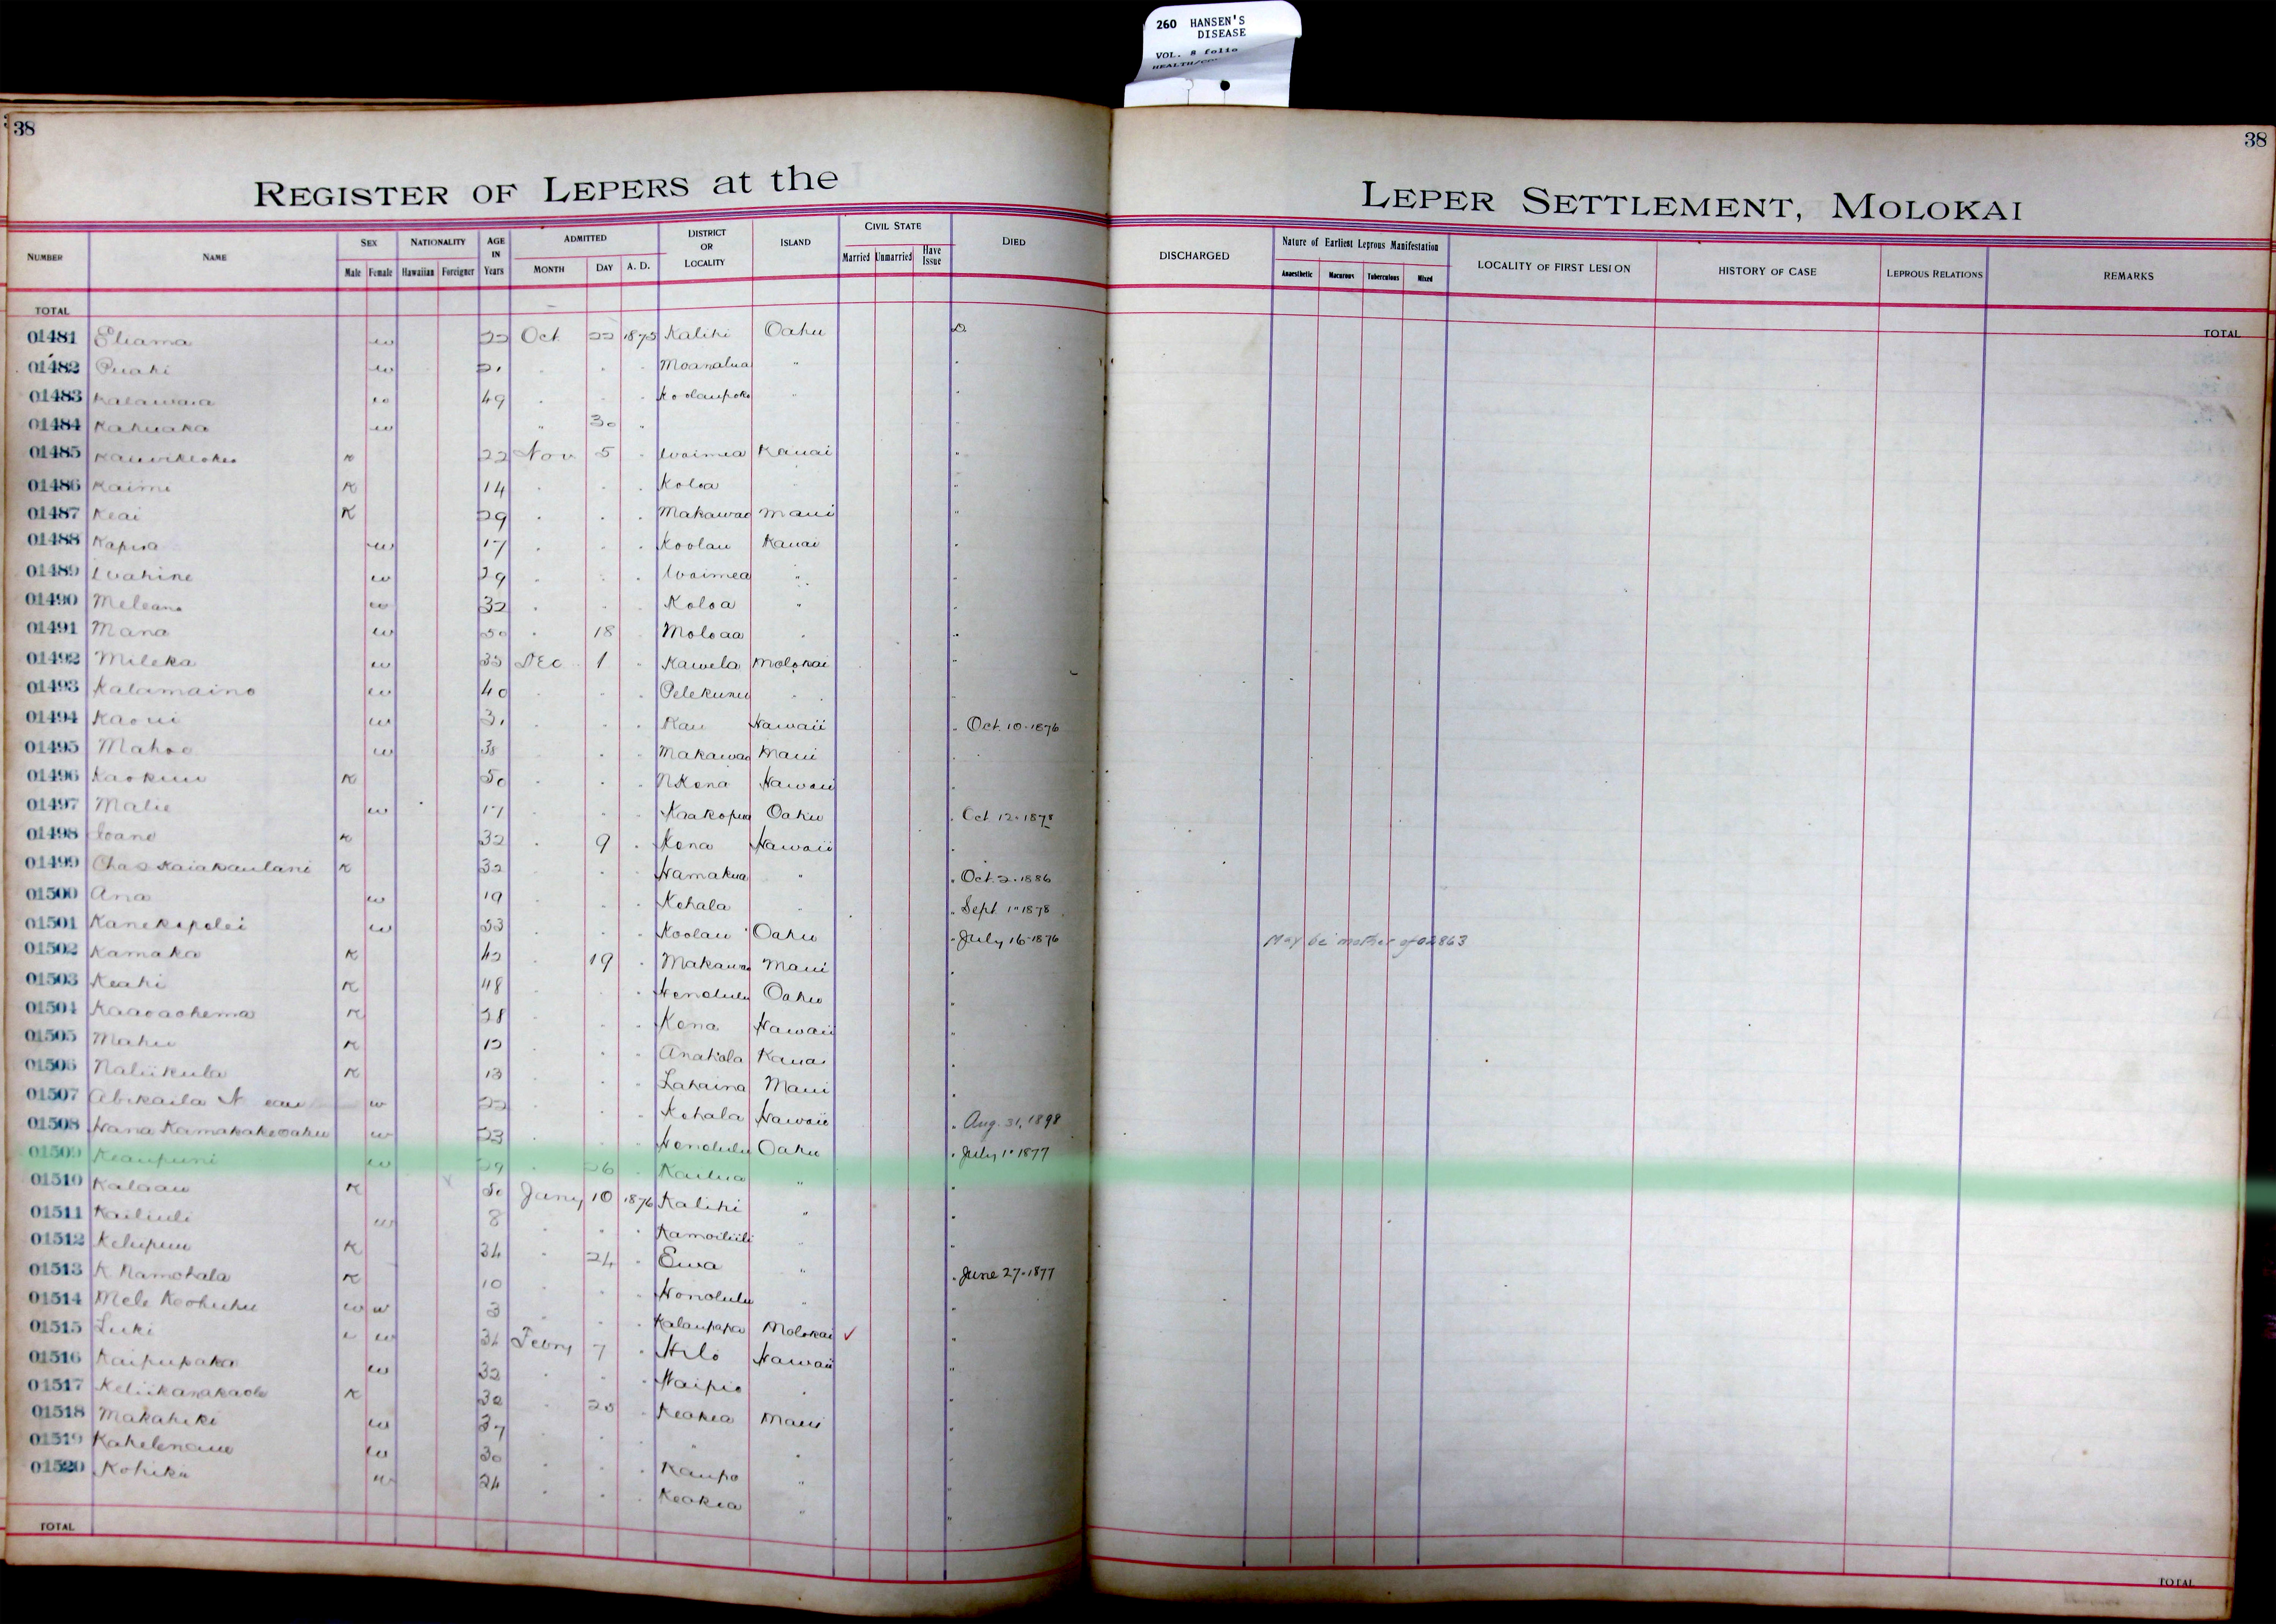 260 HANSEN'S
DISEASE
VOL. 8 folio
38
38
REGISTER OF LEPERS at the LEPER SETTLEMENT, MOLOKAI
NUMBER NAME SEX NATIONALITY AGE IN Years ADMITTED DISTRICT OR LOCALITY ISLAND CIVIL STATE DIED DISCHARGED Nature of Earliest Leprous Manifestation LOCALITY OF FIRST LESION HISTORY OF CASE LEPROUS RELATIONS REMARKS
Male Female Hawaiian Foreigner MONTH DAY A. D. Married Unmarried Have Issue Anaesthetic Macarous Tuberculous Mixed
TOTAL TOTAL
01481 Eliama w 22 Oct 22 1875 Kalihi Oahu D
01482 Puahi w Moanalua "
01483 Kalawaia w 49 " " " Koolaupoko "
01484 Kahuaka w " 30 "
01485 K 22 Nov 5 " Waimea Kauai "
01486 Kaimi K 14 " " " Koloa "
01487 Keai K 29 " " " Makawao Maui "
01488 Kapua w 17 " " " Koolau Kauai "
01489 Wahine w 29 " " " Waimea " "
01490 Meleana w 32 " " " Koloa " "
01491 Mana w 50 " 18 Moloaa " "
01492 Mileka w 35 Dec 1 " Kawela Molokai "
01493 Kalamaino w 40 " " " Pelekunu " "
01494 Kaoui w 31 " " " Kau Hawaii " Oct. 10-1876
01495 Mahoe w 38 " " Makawao Maui "
01496 Kaokuu K 50 " " " N Kona Hawaii "
01497 Malie w 17 " " Kaakopua Oahu " Oct 12-1878
01498 Ioane K 32 " 9 " Kona Hawaii "
01499 Chas Kaiakaulani K 32 " " Hamakua " " Oct. 2-1886
01500 Ana w 19 " " " Kohala " " Sept 1-1878
01501 Kanekapolei w 53 " " " Koolau Oahu " July 16-1876 May be mother of 02863
01502 Kamaka K 42 " 19 " Makawao Maui "
01503 Keahi K 48 " " " Honolulu Oahu "
01504 Kaaoaohema K 28 " " Kona Hawaii "
01505 Mahu K 12 " " " Anahola Kauai "
01506 Naliikula K 13 " " " Lahaina Maui "
01507 Abikaila N w 22 " " Kohala Hawaii " Aug. 31, 1898
01508 Hana Kamakakeoahu w 23 " " Honolulu Oahu " July 1-1877
01509 Keaupuni w 29 " 26 Kailua " "
01510 Kalaau K 50 Jany 10 1876 Kalihi " "
01511 Kailiuli w 8 " " " Kamoiliili " "
01512 Kelupuu K 34 " 24 " Ewa " " June 27-1877
01513 K Namohala K 10 " " " Honolulu " "
01514 Mele Keohuhu w w 3 " " Kalaupapa Molokai ✓ "
01515 Luki w 34 Febry 7 " Hilo Hawaii "
01516 Kaipupaka w 32 " " " Waipio " "
01517 Keliikanakaole K 30 " 25 " Keokea Maui "
01518 Makahiki w 37 " " " "
01519 w 30 " " " Kaupo " "
01520 Kohika w 24 " " " Keokea " "
TOTAL TOTAL